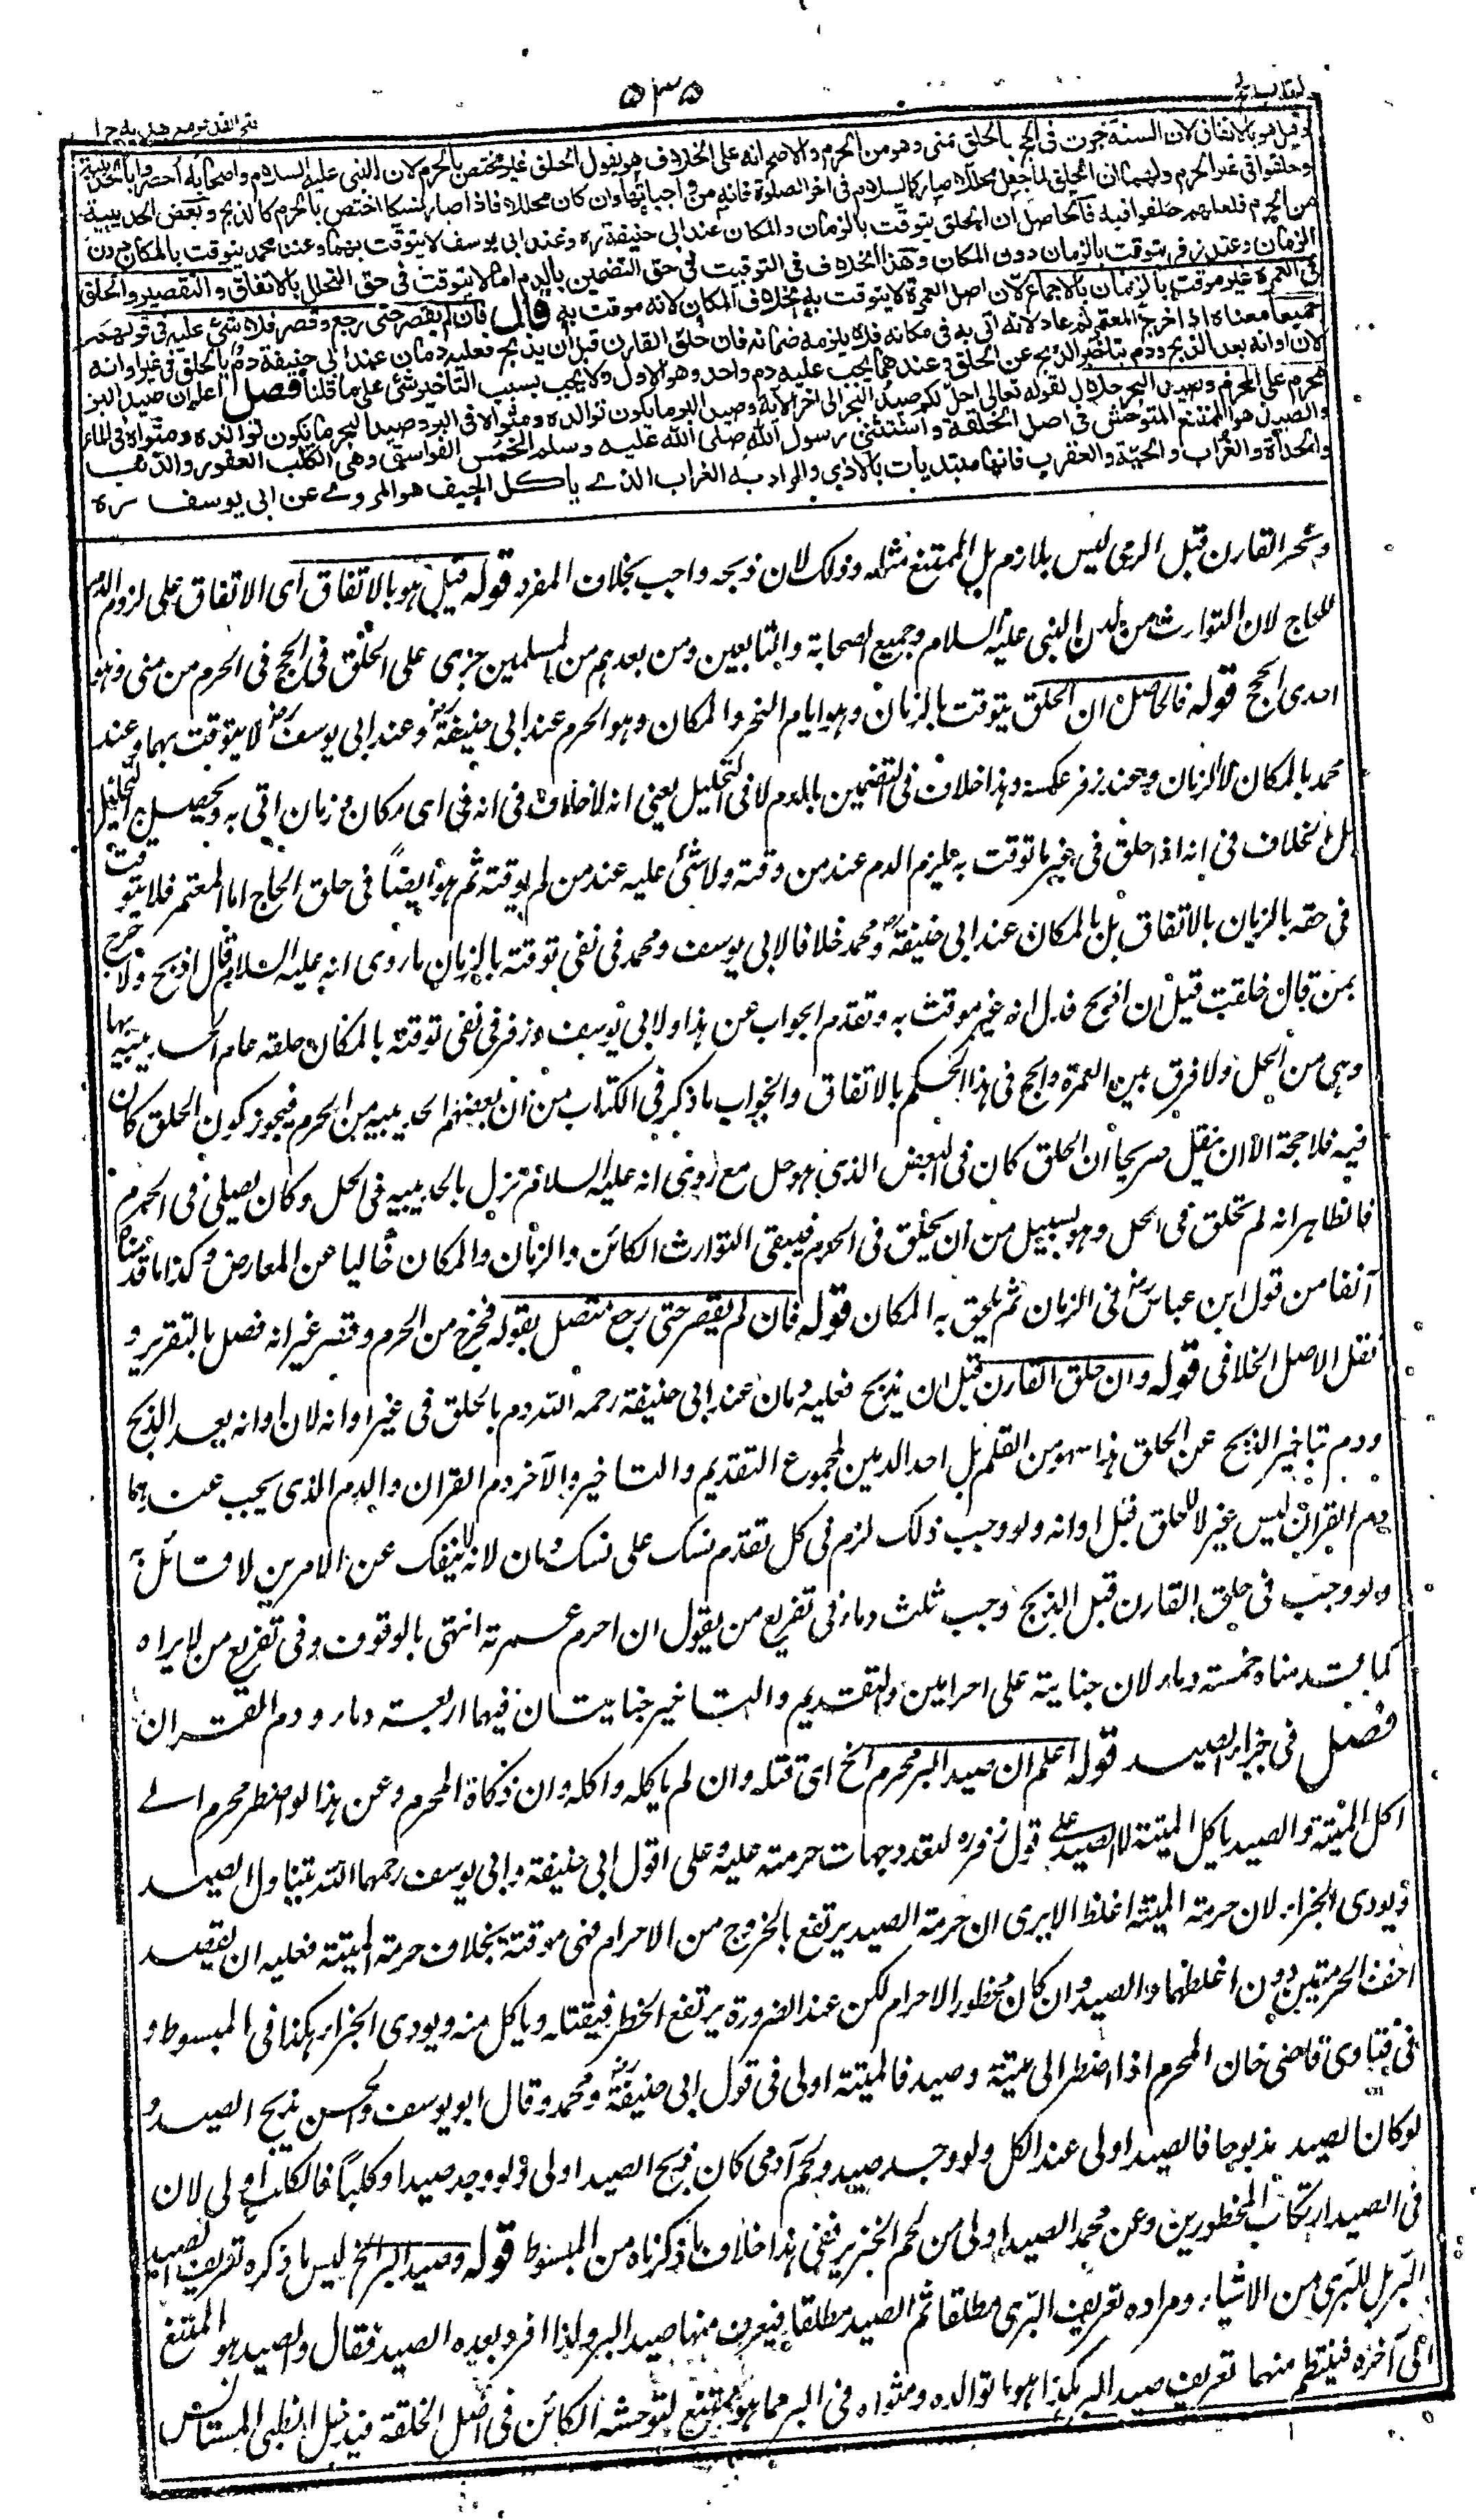 ۵۳۵
فتح القدير مع هداية ج ا
وقيل هو بالاتفاق لان السنة جرت فى الحج بالحلق بمنى وهو من الحرم والاصح انه على الخلاف هو يقول الحلق غير مختص بالحرم لان النبى عليه السلام واصحابه احصروا بالحديبية
وحلقوا فى غير الحرم ولهما ان الحلق لما جعل محللا صار كالسلام فى اخر الصلوة فانه من واجباتها وان كان محللا فاذا صار نسكا اختص بالحرم كالذبح وبعض الحديبية
من الحرم فلعلهم حلقوا فيه فالحاصل ان الحلق يتوقت بالزمان والمكان عند ابى حنيفة ره وعند ابى يوسف لا يتوقت بهما وعند محمد يتوقت بالمكان دون
الزمان وعند زفر يتوقت بالزمان دون المكان وهذا الخلاف فى التوقيت فى حق التضمين بالدم اما لا يتوقت فى حق التحلل بالاتفاق والتقصير والحلق
فى العمرة غير موقت بالزمان بالاجماع لان اصل العمرة لا يتوقت به بخلاف المكان لانه موقت به قال فان لم يقصر حتى رجع وقصر فلا شئ عليه فى قولهم
جميعا معناه اذا خرج المعتمر ثم عاد لانه اتى به فى مكانه فلا يلزمه ضمانه فان حلق القارن قبل ان يذبح فعليه دمان عند ابى حنيفة دم بالحلق فى غير اوانه
لان اوانه بعد الذبح ودم بتاخير الذبح عن الحلق وعندهما يجب عليه دم واحد وهو الاول ولا يجب بسبب التأخير شئ على ما قلنا فصل اعلم ان صيد البر
محرم على المحرم وصيد البحر حلال لقوله تعالى احل لكم صيد البحر الى اخر الآية وصيد البر ما يكون توالده ومثواه فى البر وصيد البحر ما يكون توالده ومثواه فى الماء
والصيد هو الممتنع المتوحش فى اصل الخلقة واستثنى رسول الله صلى الله عليه وسلم الخمس الفواسق وهى الكلب العقور والذئب
والحدأة والغراب والحية والعقرب فانها مبتديات بالاذى والمراد به الغراب الذے ياكل الجيف هو المروے عن ابى يوسف ره
ونحر القارن قبل الرمى ليس بلازم بل الممتنع مثله وذلك لان ذبحه واجب بخلاف المفرد قوله قيل هو بالاتفاق اى الاتفاق على لزوم الدم
للحاج لان التوارث من لدن النبى عليه السلام وجميع الصحابة والتابعين ومن بعدهم من المسلمين جرى على الحلق فى الحج فى الحرم من منى وهو
احدى الحجج قوله فالحاصل ان الحلق يتوقت بالزمان وهو ايام النحر والمكان وهو الحرم عند ابى حنيفةؒ وعند ابى يوسفؒ لا يتوقت بهما وعند
محمد بالمكان لا الزمان وعند زفر عكسه وهذا خلاف فى التضمين بالدم لا فى التحليل يعنى انه لا خلاف فى انه فى اى مكان وزمان اتى به يحصل التحلل
بل الخلاف فى انه اذا حلق فى غير ما توقت به يلزم الدم عند من وقته ولا شئ عليه عند من لم يوقته ثم هو ايضاً فى حلق الحاج اما المعتمر فلا يتوقت
فى حقه بالزمان بالاتفاق بل بالمكان عند ابى حنيفةؒ ومحمد خلافا لابى يوسف ومحمد فى نفى توقته بالزمان ما روى انه عليه السلام قال اذبح ولا حرج
لمن قال حلقت قبل ان اذبح فدل انه غير موقت به وتقدم الجواب عن هذا ولابى يوسف وزفر فى نفى توقته بالمكان حلقه عام الحديبية بها
وهى من الحل ولا فرق بين العمرة والحج فى هذا الحكم بالاتفاق والجواب ما ذكر فى الكتاب من ان بعضهم الحديبية من الحرم فيجوز كون الحلق كان
فيه فلا حجة الا ان ينقل صريحا ان الحلق كان فى البعض الذى هو حل مع روى انه عليه السلام نزل بالحديبية فى الحل وكان يصلى فى الحرم
فالظاهر انه لم يحلق فى الحل وهو بسبيل من ان يحلق فى الحرم فيبقى التوارث الكائن والزمان والمكان خاليا عن المعارض وكذا ما قدمناه
آنفا من قول ابن عباسؓ فى الزمان ثم يلحق به المكان قوله فان لم يقصر حتى رجع متصل بقوله فخرج من الحرم وقصر غير انه فصل بالتقرير و
نقل الاصل الخلافى قوله وان حلق القارن قبل ان يذبح فعليه دمان عند ابى حنيفة رحمه الله دم بالحلق فى غير اوانه لان اوانه بعد الذبح
ودم بتاخير الذبح عن الحلق هذا سهو من القلم بل احد الدمين لمجموع التقديم والتاخير والآخر دم القران والدم الذى يجب عندهما
دم القران ليس غير لا للحلق قبل اوانه ولو وجب ذلك لزم فى كل تقدم نسك على نسك دمان لانه لا ينفك عن الامرين لا قائل به
ولو وجب فى حلق القارن قبل الذبح وجب ثلث دماء فى تفريع من يقول ان احرام عمرته انتهى بالوقوف وفى تفريع من لا يراه
كما قدمناه وخمسة دماء لان جنايته على احرامين والتقديم والتاخير جنايتان ففيهما اربعة دماء ودم القران
فصل فى جزاء الصيد قوله اعلم ان صيد البر محرم الخ اى قتله وان لم ياكله واكله وان ذكاة المحرم وعن هذا لو اضطر محرم الے
اكل الميتة والصيد ياكل الميتة لا الصيد على قول زفر ره لتعدد جهات حرمته عليه وعلى قول ابى حنيفة وابى يوسف رحمهما الله يتناول الصيد
ويودى الجزاء لان حرمة الميتة اغلظ الا يرى ان حرمة الصيد يرتفع بالخروج من الاحرام فهى موقتة بخلاف حرمة الميتة فعليه ان يقصد
اخف الحرمتين دون اغلظهما والصيد وان كان محظور الاحرام لكن عند الضرورة يرتفع الحظر فيقتله وياكل منه ويودى الجزاء هكذا فى المبسوط و
فى فتاوى قاضى خان المحرم اذا اضطر الى ميتة وصيد فالميتة اولى فى قول ابى حنيفةؒ ومحمد وقال ابو يوسف والحسن يذبح الصيد و
لو كان الصيد مذبوحا فالصيد اولى عند الكل ولو وجد صيد ولحم آدمى كان ذبح الصيد اولى ولو وجد صيدا وكلباً فالكلب اولى لان
فى الصيد ارتكاب المحظورين وعن محمد الصيد اولى من لحم الخنزير ففى هذا خلاف ما ذكرناه من المبسوط قوله وصيد البر الخ ليس ما ذكره تعريف الصيد
البر بل للبرى من الاشياء ومراده تعريف البرى مطلقا ثم الصيد مطلقا فيعرف منهما صيد البر ولذا افرد بعده الصيد فقال والصيد هو الممتنع
الى آخره فينتظم منهما تعريف صيد البر هكذا هو ما توالده ومثواه فى البر مما هو ممتنع لتوحشه الكائن فى اصل الخلقة فيدخل الظبى المستانس